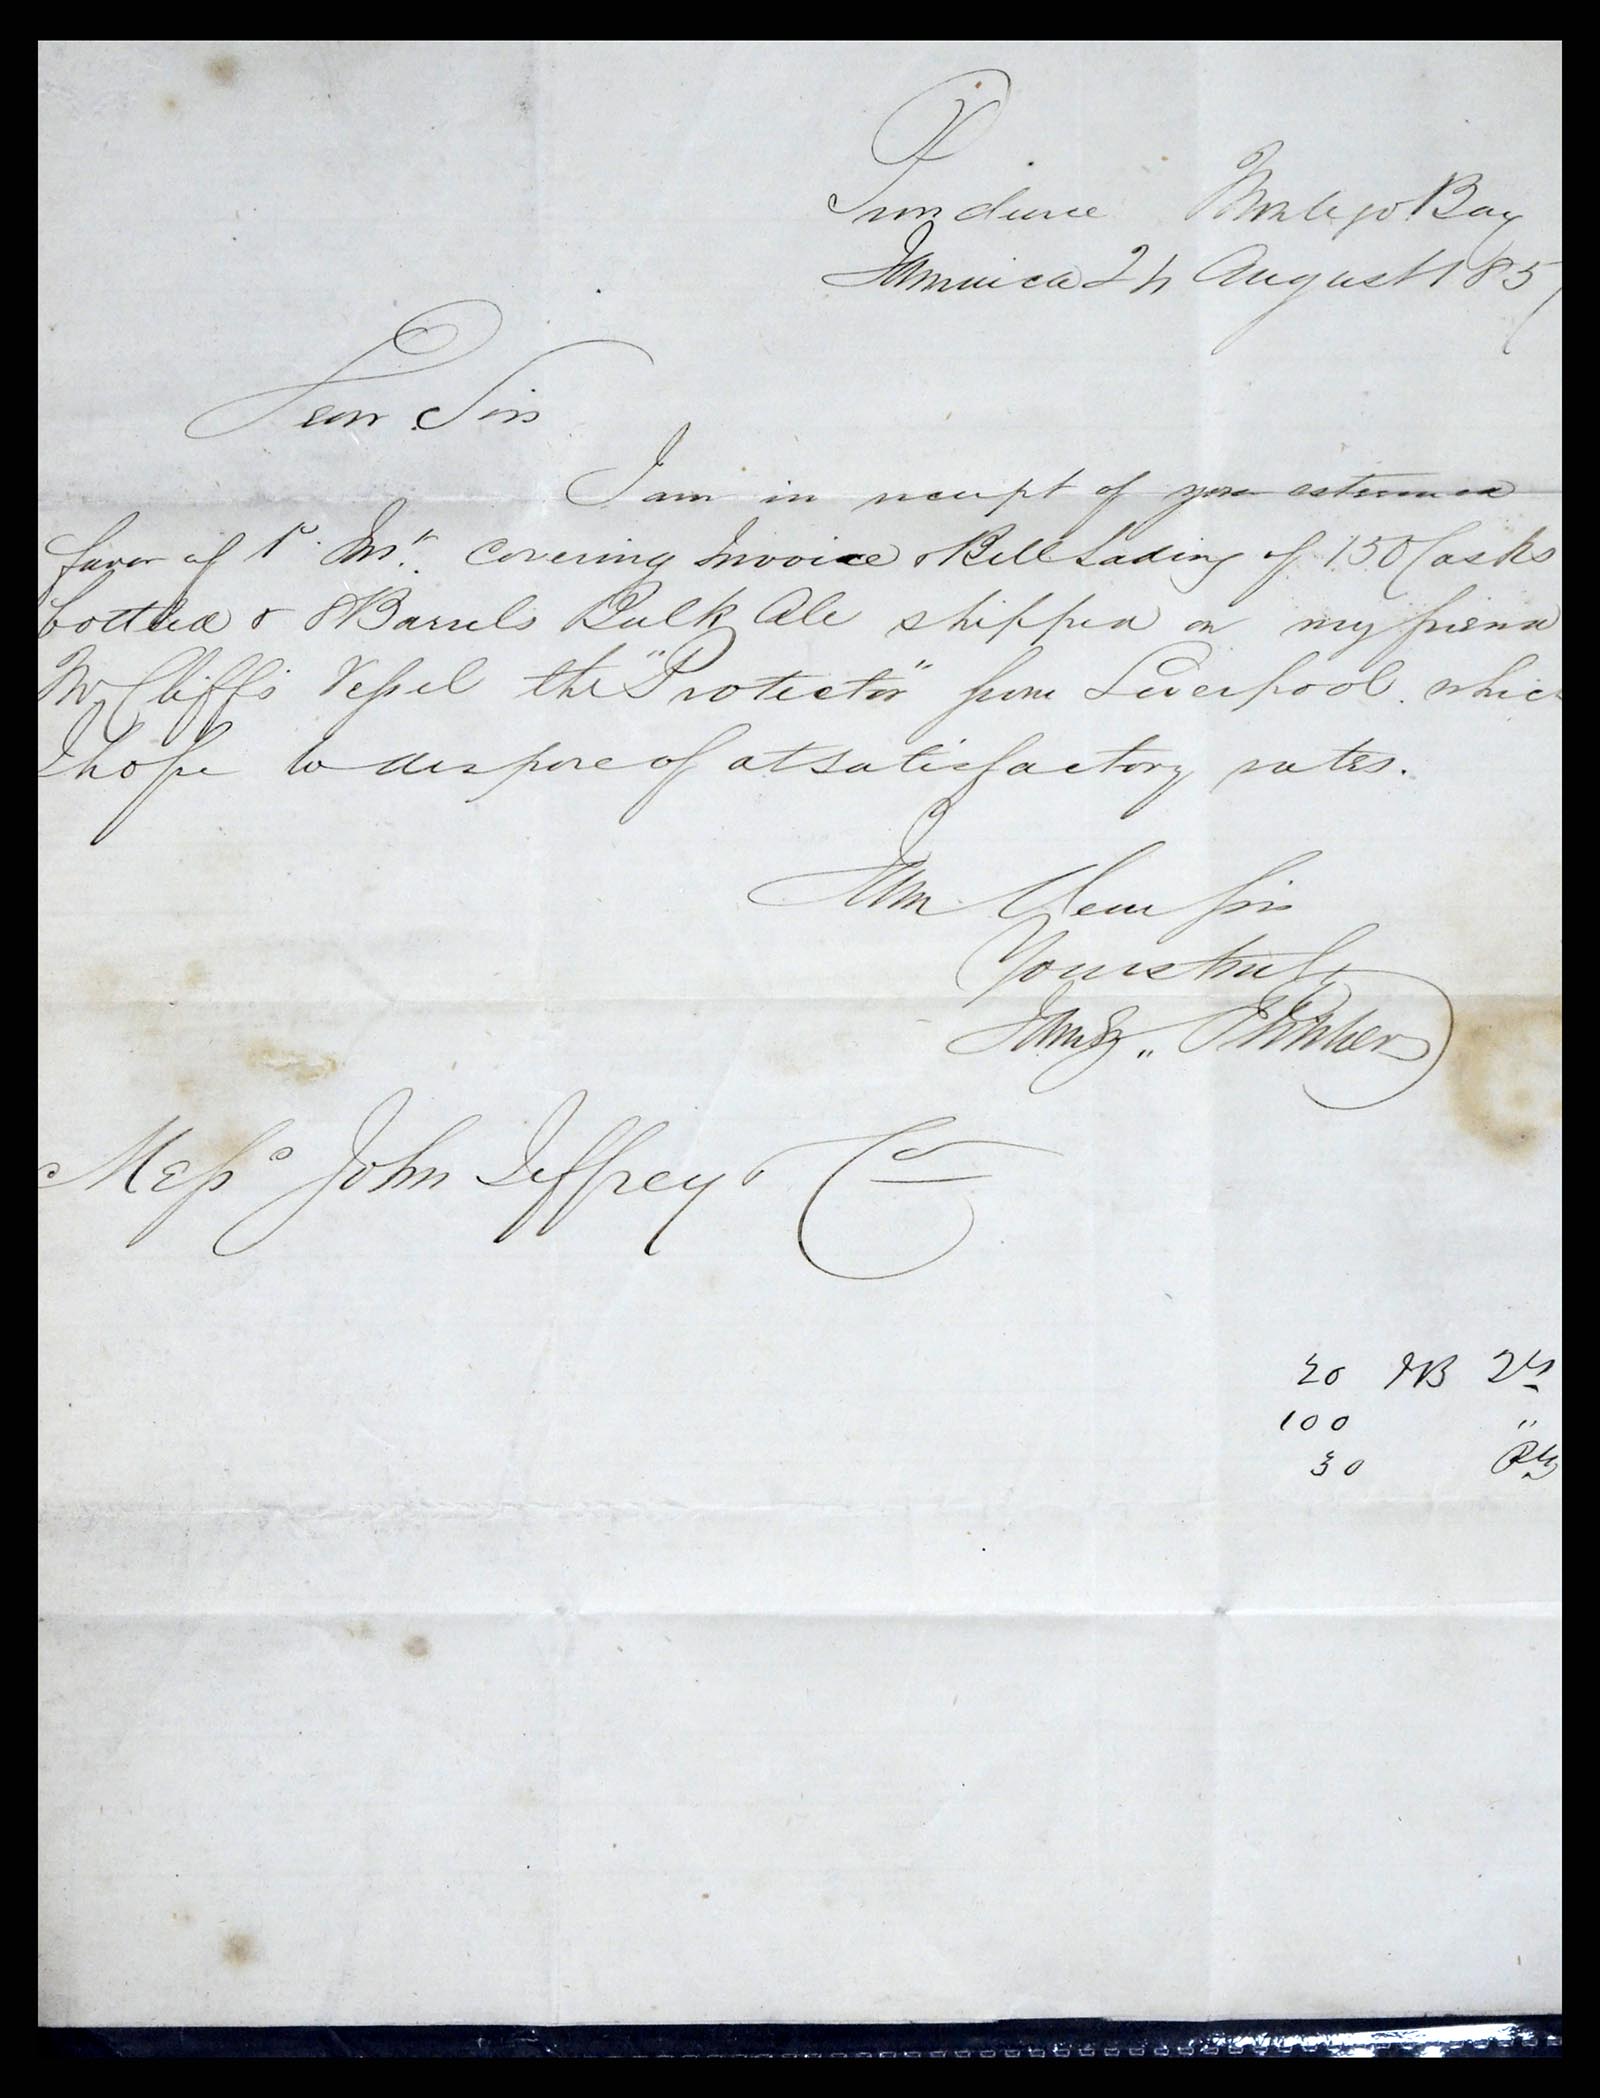 Montego Bay
Jamaica 24 August 185
Dear Sirs
I am in receipt of your esteemed
favor of 1st Inst. covering Invoice & Bill Lading of 150 Casks
bottled & 8 Barrels Bulk Ale shipped on my friend
Mr Cliff's Vessel the "Protector" from Liverpool. which
I hope to dispose of at satisfactory rates.
I am Dear Sirs
Yours truly
Messrs John Jeffrey & Co
20
100 "
30